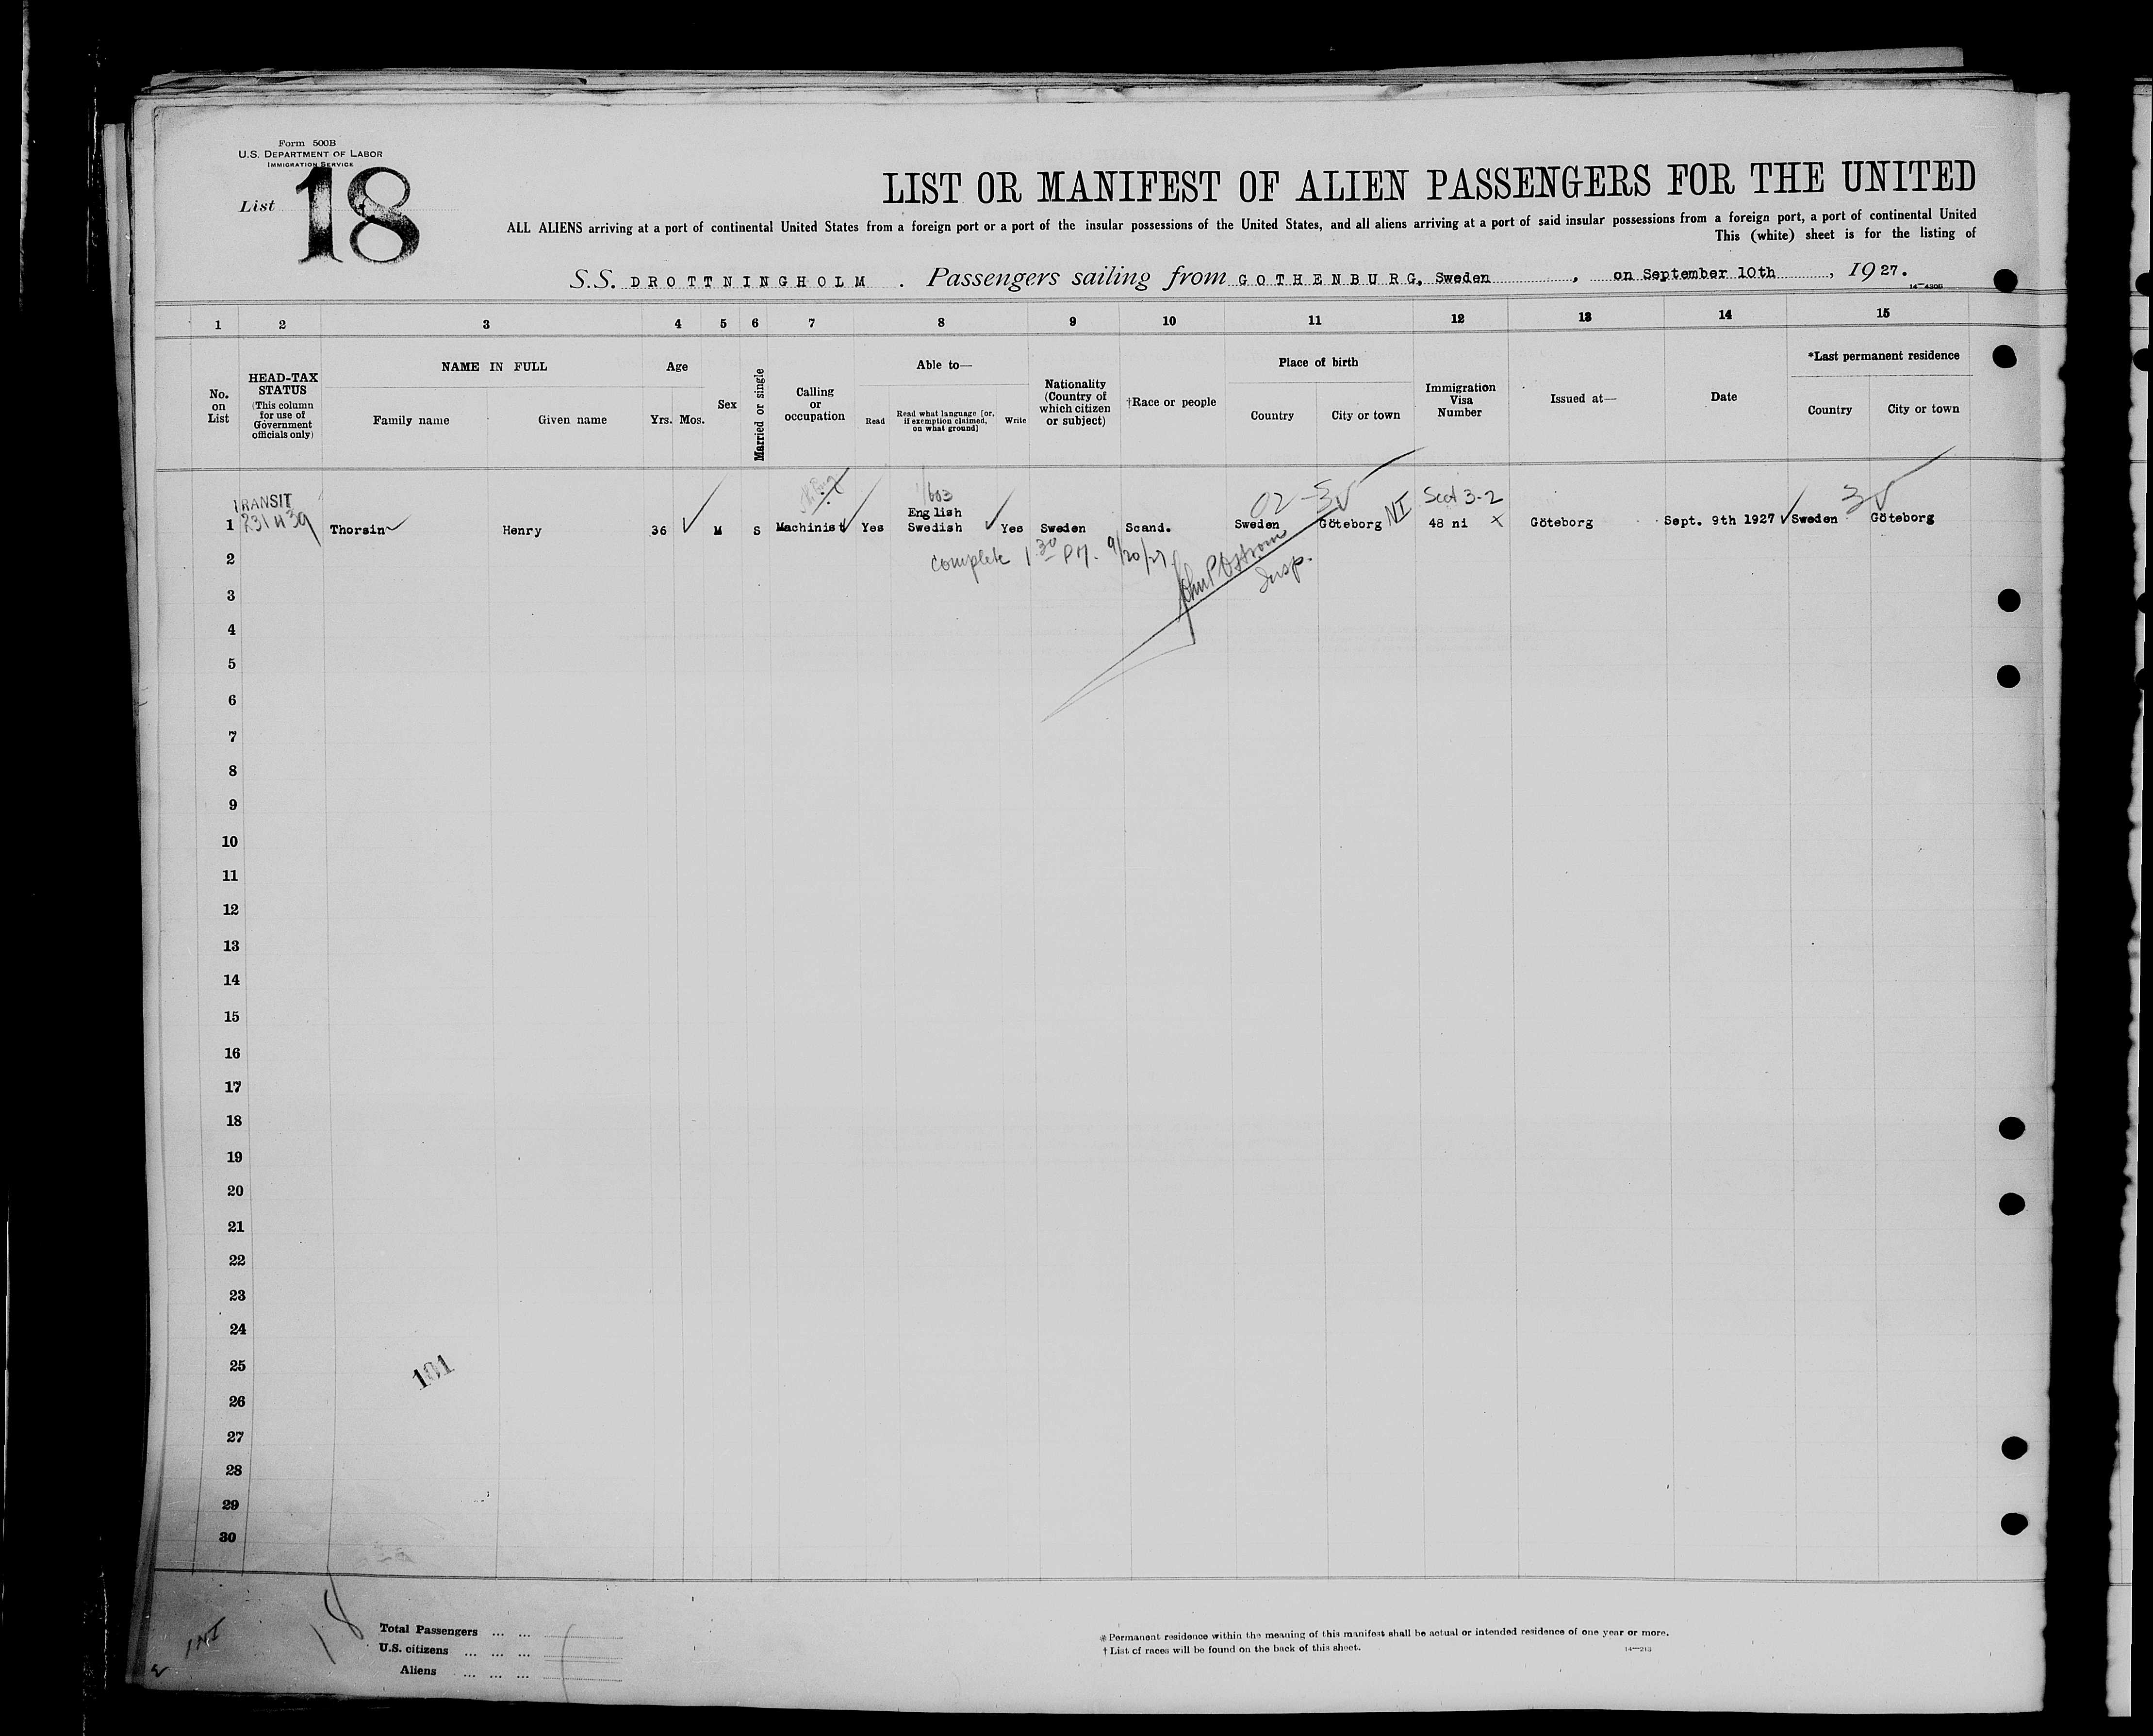 Form 500B
U.S. DEPARTMENT OF LABOR
IMMIGRATION SERVICE
List 18
LIST OR MANIFEST OF ALIEN PASSENGERS FOR THE UNITED
ALL ALIENS arriving at a port of continental United States from a foreign port or a port of the insular possessions of the United States, and all aliens arriving at a port of said insular possessions from a foreign port, a port of continental United
This (white) sheet is for the listing of
S.S. DROTTNINGHOLM . Passengers sailing from GOTHENBURG, Sweden , on September 10th , 1927.
1 2 3 4 5 6 7 8 9 10 11 12 13 14 15
No. on List
HEAD-TAX STATUS
(This column for use of Government officials only)
NAME IN FULL
Family name Given name
Age
Yrs. Mos.
Sex
Married or single
Calling or occupation
Able to—
Read
Read what language [or, if exemption claimed, on what ground]
Write
Nationality (Country of which citizen or subject)
†Race or people
Place of birth
Country City or town
Immigration Visa Number
Issued at—
Date
*Last permanent residence
Country City or town
TRANSIT
02 - 3 NI Sect 3-2 3
English
1 Thorsin Henry 36 M S Machinist Yes Swedish Yes Sweden Scand. Sweden Göteborg 48 ni X Göteborg Sept. 9th 1927 Sweden Göteborg
complete 1 30 P.M. 9/20/27 John P Ostrom
Insp.
2
3
4
5
6
7
8
9
10
11
12
13
14
15
16
17
18
19
20
21
22
23
24
25
101
26
27
28
29
30
1 NI
18
Total Passengers ... ...
U.S. citizens ... ... ...
Aliens ... ... ...
* Permanent residence within the meaning of this manifest shall be actual or intended residence of one year or more.
† List of races will be found on the back of this sheet.
14—213